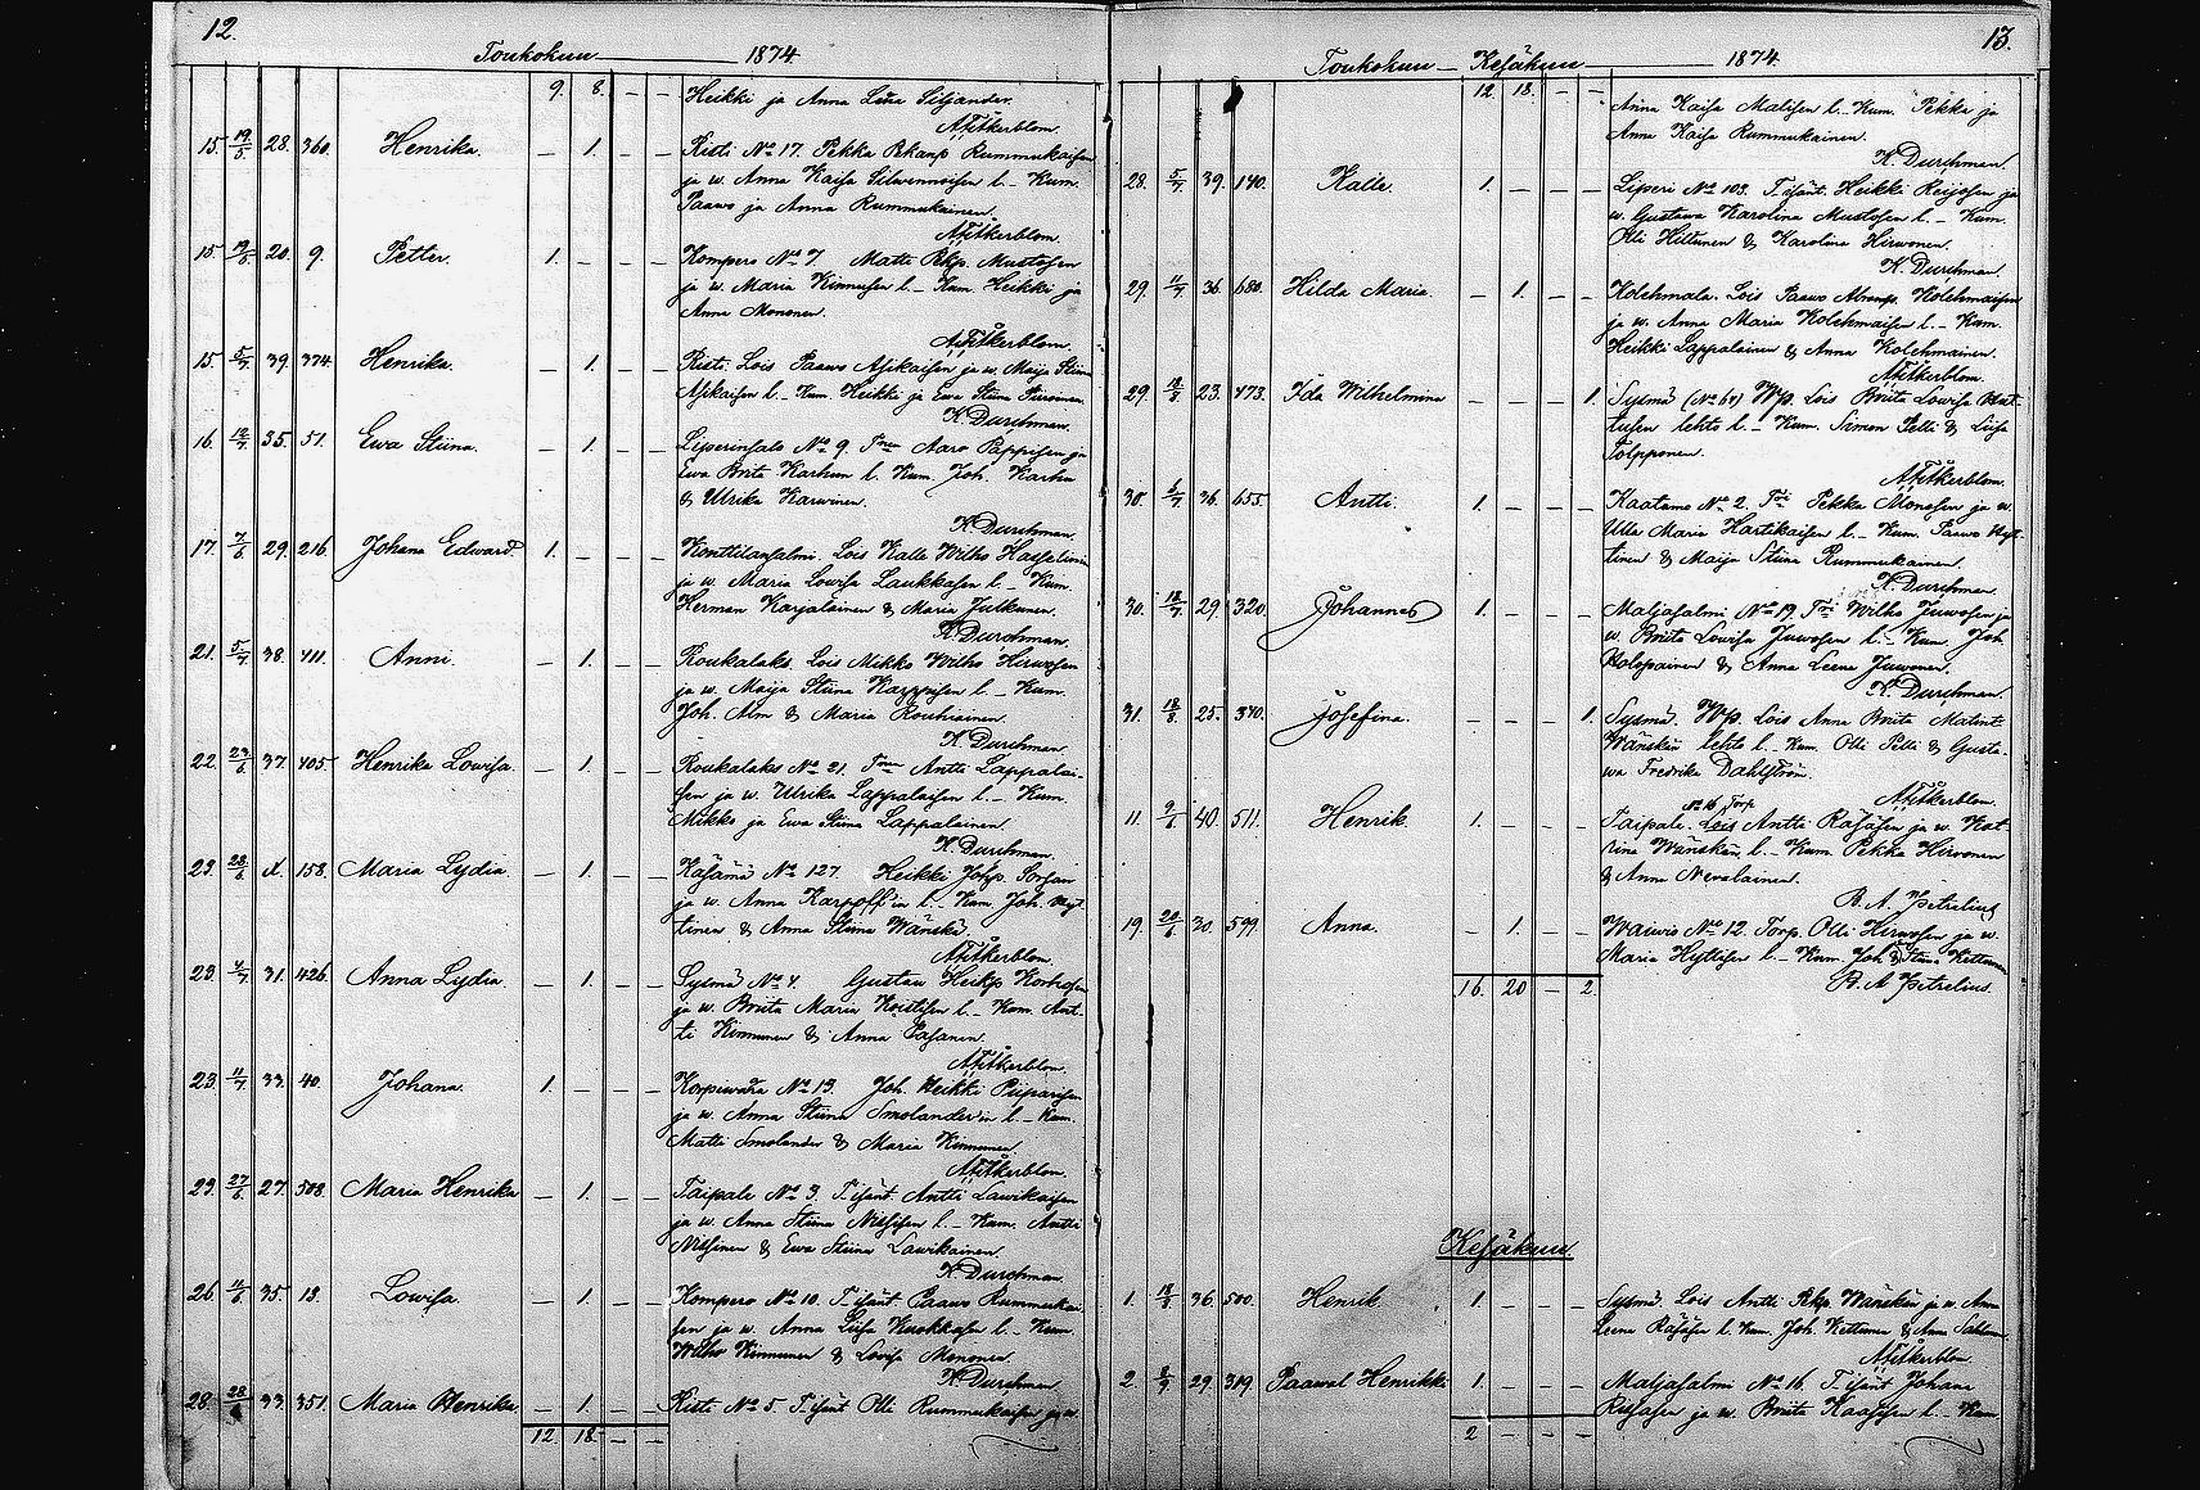 12.
Toukokuu 1874
9. 8. — — Heikki ja Anna Liisa Siljander.
A. F. Åkerblom.
15. 19/5 28. 360. Henrika. — 1. — — Risti No 17. Pekka Pekanp Rummukaisen
ja w. Anna Kaisa Silwennoisen l. – Kum.
Paawo ja Anna Rummukainen.
A. F. Åkerblom.
15. 20. 9. Petter. 1. — — — Kompero No 7. Matti Pkp. Mustosen
ja w. Maria Kinnusen l. – Kum. Heikki ja
Anna Mononen.
A. F. Åkerblom.
15. 5/7 39. 374. Henrika. — 1. — — Risti. Lois Paawo Asikaisen ja w. Maija Stiina
Asikaisen l. – Kum. Heikki ja Ewa Stiina Piiroinen.
K. Durchman.
16. 12/7 35. 51. Ewa Stiina. — 1. — — Liperinsalo No 9. Aaro Pappisen ja
Ewa Brita Karhun l. Kum. Joh. Karhu
& Ulrika Karwinen.
K. Durchman.
17. 7/6 29. 216. Johana Edward. 1. — — — Konttilansalmi. Lois Kalle Wilho
ja w. Maria Lowisa Laukkasen l. – Kum.
Herman Karjalainen & Maria Julkunen.
K. Durchman.
21. 5/7 38. 411. Anni. — 1. — — Roukalaks. Lois Mikko Wilho Hirwosen
ja w. Maija Stiina Karppisen l. – Kum.
Joh. Alm & Maria Rouhiainen.
K. Durchman.
22. 24/6 37. 405. Henrika Lowisa. — 1. — — Roukalaks No 21. Antti Lappalai-
sen ja w. Ulrika Lappalaisen l. – Kum.
Mikko ja Ewa Stiina Lappalainen.
K. Durchman.
23. 28/6 158. Maria Lydia. — 1. — — Käsämä No 127. Heikki Johp. Sorsan
ja w. Anna Karpoff'in l. – Kum. Joh. Hyt-
tinen & Anna Stiina Wänskä.
A. F. Åkerblom.
23. 4/7 31. 426. Anna Lydia. — 1. — — Sysmä No 4. Gustau Heikp Korhosen
ja w. Briita Maria Koistisen l. – Kum. Ant-
ti Kinnunen & Anna Pasanen.
A. F. Åkerblom.
23. 11/7 33. 40. Johana. 1. — — — Korpiwaara No 13. Joh. Heikki Piiparisen
ja w. Anna Stiina Smolander'in l. – Kum.
Matti Smolander & Maria Kinnunen.
A. F. Åkerblom.
23. 27/6 27. 508. Maria Henrika — 1. — — Taipale No 3. T. isänt. Antti Lawikaisen
ja w. Anna Stiina Nissisen l. – Kum. Antti
Nissinen & Ewa Stiina Lawikainen.
K. Durchman.
26. 11/6 35. 13. Lowisa. — 1. — — Kompero No 10. T. isänt. Paawo Rummukai-
sen ja w. Anna Liisa Kuokkasen l. – Kum.
Wilho Kinnunen & Lovisa Mononen.
K. Durchman
28. 28/6 33. 351. Maria Henrika. — 1. — — Risti No 5. T. isänt Olli Rummukaisen ja w.
12. 18. — —
13.
Toukokuu – Kesäkuu 1874
12. 18. — — Anna Kaisa Malisen l. – Kum. Pekka ja
Anna Kaisa Rummukainen.
K. Durchman.
28. 5/7 39. 140. Kalle. 1. — — — Liperi No 103. T. isänt. Heikki Reijosen ja
w. Gustawa Karolina Mustosen l. – Kum.
Olli Hiltunen & Karolina Hirwonen.
K. Durchman.
29. 11/7 36. 680. Hilda Maria. — 1. — — Kolehmala. Lois Paawo Abramp. Kolehmaisen
ja w. Anna Maria Kolehmaisen l. – Kum.
Heikki Lappalainen & Anna Kolehmainen.
A. F. Åkerblom.
29. 18/8 23. 473. Ida Wilhelmina — — — 1. Sysmä (No 64) Wp. Lois Briita Lowisa
tusen lehto l. – Kum. Simon Pelli & Liisa
Tolpponen.
A. F. Åkerblom.
30. 5/7 36. 655. Antti. 1. — — — Kaatamo No 2. Pekka Monosen ja w.
Ulla Maria Hartikaisen l. – Kum. Paawo Hyt-
tinen & Maija Stiina Rummukainen.
K. Durchman.
30. 18/7 29. 320. Johannes 1. — — — Maljasalmi No 19. Wilho Juwosen ja
w. Briita Lowisa Juwosen l. – Kum. Joh.
Holopainen & Anna Leena Juwonen.
K. Durchman.
31. 18/8 25. 340. Josefina. — — — 1. Sysmä. Wp. Lois Anna Briita Matint.
Wänskän lehto l. – Kum. Olli Pelli & Gusta-
wa Fredrika Dahlström.
A. F. Åkerblom.
No 16 Torp
11. 9/6 40. 511. Henrik. 1. — — — Taipale. Lois Antti Räsäsen ja w. Kat-
rina Wänskän l. – Kum. Pekka Hirvonen
& Anna Nevalainen.
B. A. Petrelius
19. 20/6 30. 599. Anna. — 1. — — Waiwio No 12. Torp. Olli Hirwosen ja w.
Maria Hyttisen l. – Kum. Joh & Stiina Kettunen
16. 20 — 2. B. A. Petrelius.
Kesäkuu.
1. 18/8 36. 500. Henrik. 1. — — — Sysmä. Lois Antti Pkp. Wänskän ja w. Anna
Leena Räsäsen l. Kum. Joh. Kettunen & Anna
A. F. Åkerblom
2. 29. 319. Paawal Henrikki 1. — — — Maljasalmi No 16. T. isänt Johana
Riissasen ja w. Briita Kaasisen l. – Kum
2 — — —